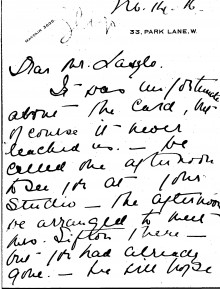 Feb. 14. 16.
MAYFAIR 3000.
33, PARK LANE, W.
Dear Mr. Laszlo.
It was unfortunate
about the card, but
of course it never
reached us. — We
called one afternoon
to see you at your
Studio — the afternoon
we arranged to meet
Mrs. Lipton there —
but you had already
gone. — We still hope